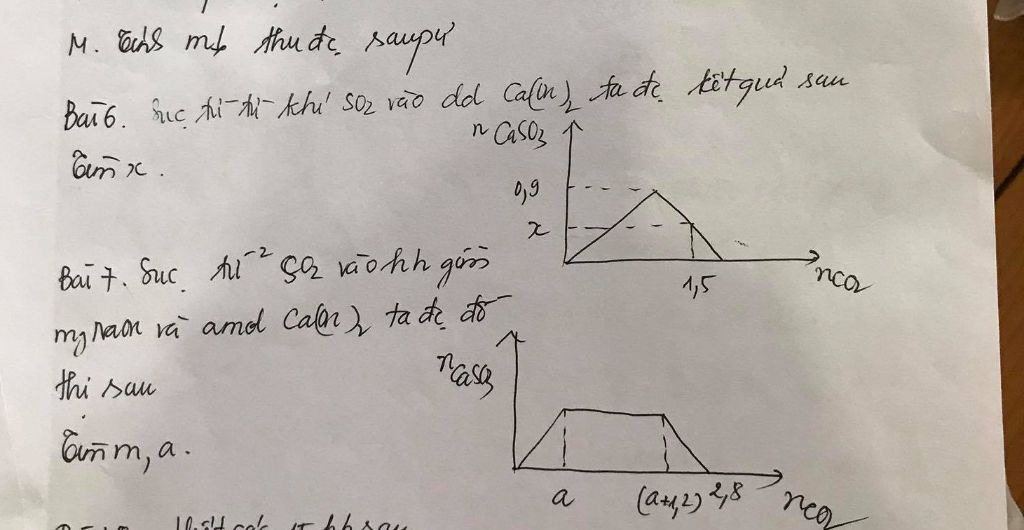 M. Tính mb thu đc saupứ
Bài 6. Sục từ-từ khí SO2 vào dd Ca(OH)2 ta đc kết quả sau
Tìm x.
n CaSO3
0,9
x
1,5
nCO2
Bài 7. Sục từ-2 SO2 vào hh gồm
mg NaOH và amol Ca(OH)2 ta đc đồ
thị sau
Tìm m, a.
nCaSO3
a
(a+1,2)
2,8
nCO2